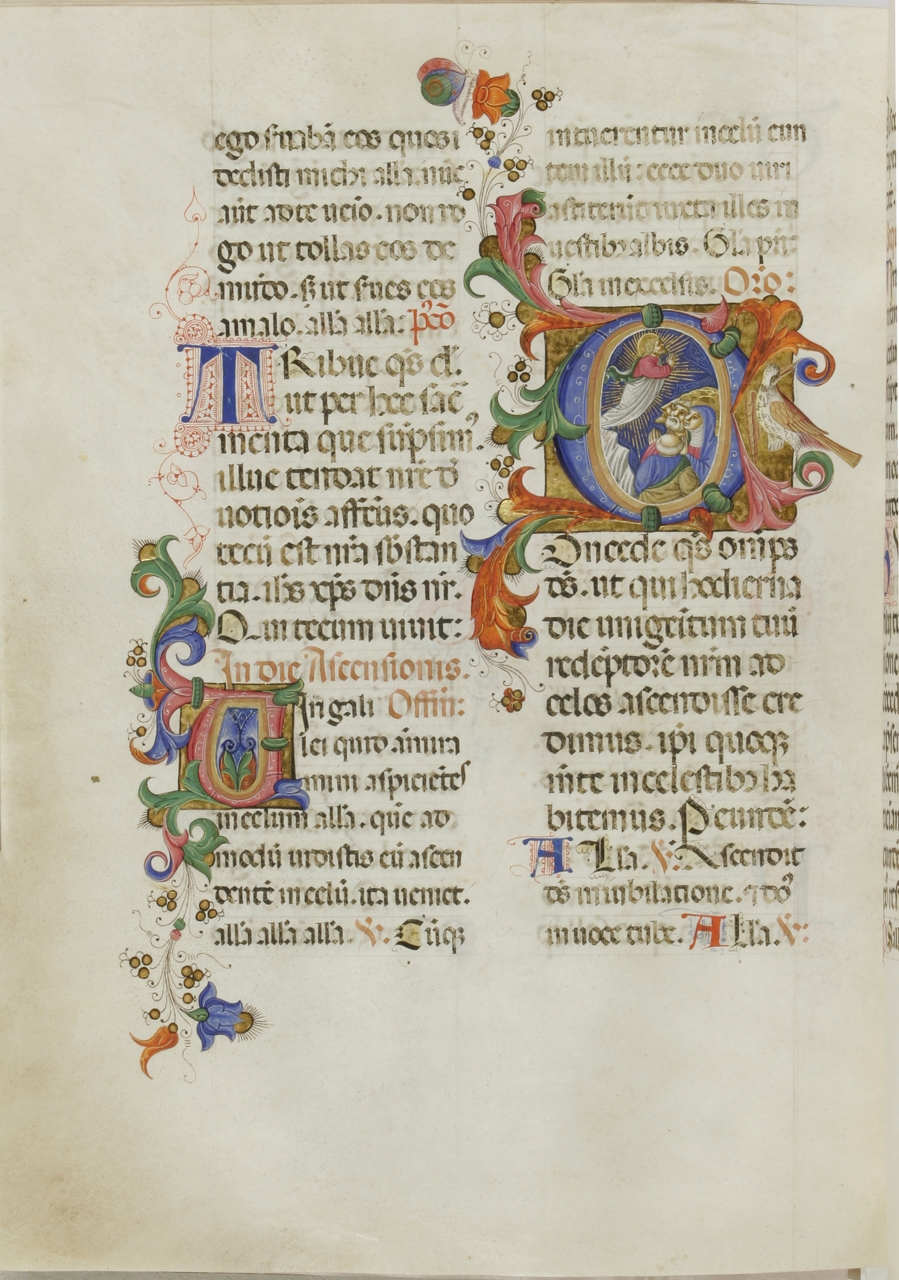 ego s̄uabā eos quos
dedisti michi alla. nūc
aūt ad te ueīo. non ro
go ut tollas eos de
mūdo. s̄ ut s̄ues eos
a malo. alla alla. p̄cō
TRibue qs̄ cl̄.
ut per hec sac̄
menta que sūpsim᾽.
illuc tendat nr̄e d̄
uotiōis affcūs. quo
tecū est nr̄a s̄bstan
tia. ih̄s xp̄s dn̄s nr̄.
Qui tecum uiuit:
In die Ascensionis.
Uiri gali Offm̄:
lei quid āmira
mini aspiciētes
in celum alla. quē ad
modū uidistis eū ascen
dentē in celū. ita ueniet.
alla alla alla. V̄. Cūqꝫ
intuerentur in celū eun
tem illū: ecce duo uiri
astiterūt iuxta illos in
uestib᾽ albis. Gla pr̄i:
Gla in excelsis. Oro᷎:
COncede qs̄ om̄ps
ds̄. ut qui hodierna
die unigenitum tuū
redēptorē nr̄m ad
celos ascendisse cre
dimus. ipi quoqꝫ
mēte in celestib᾽ ha
bitemus. P eundē:
Alla. V̄. Ascendit
ds̄ in iubilatione. ⁊ dō᾽
in uoce tube. Alla. V̄: